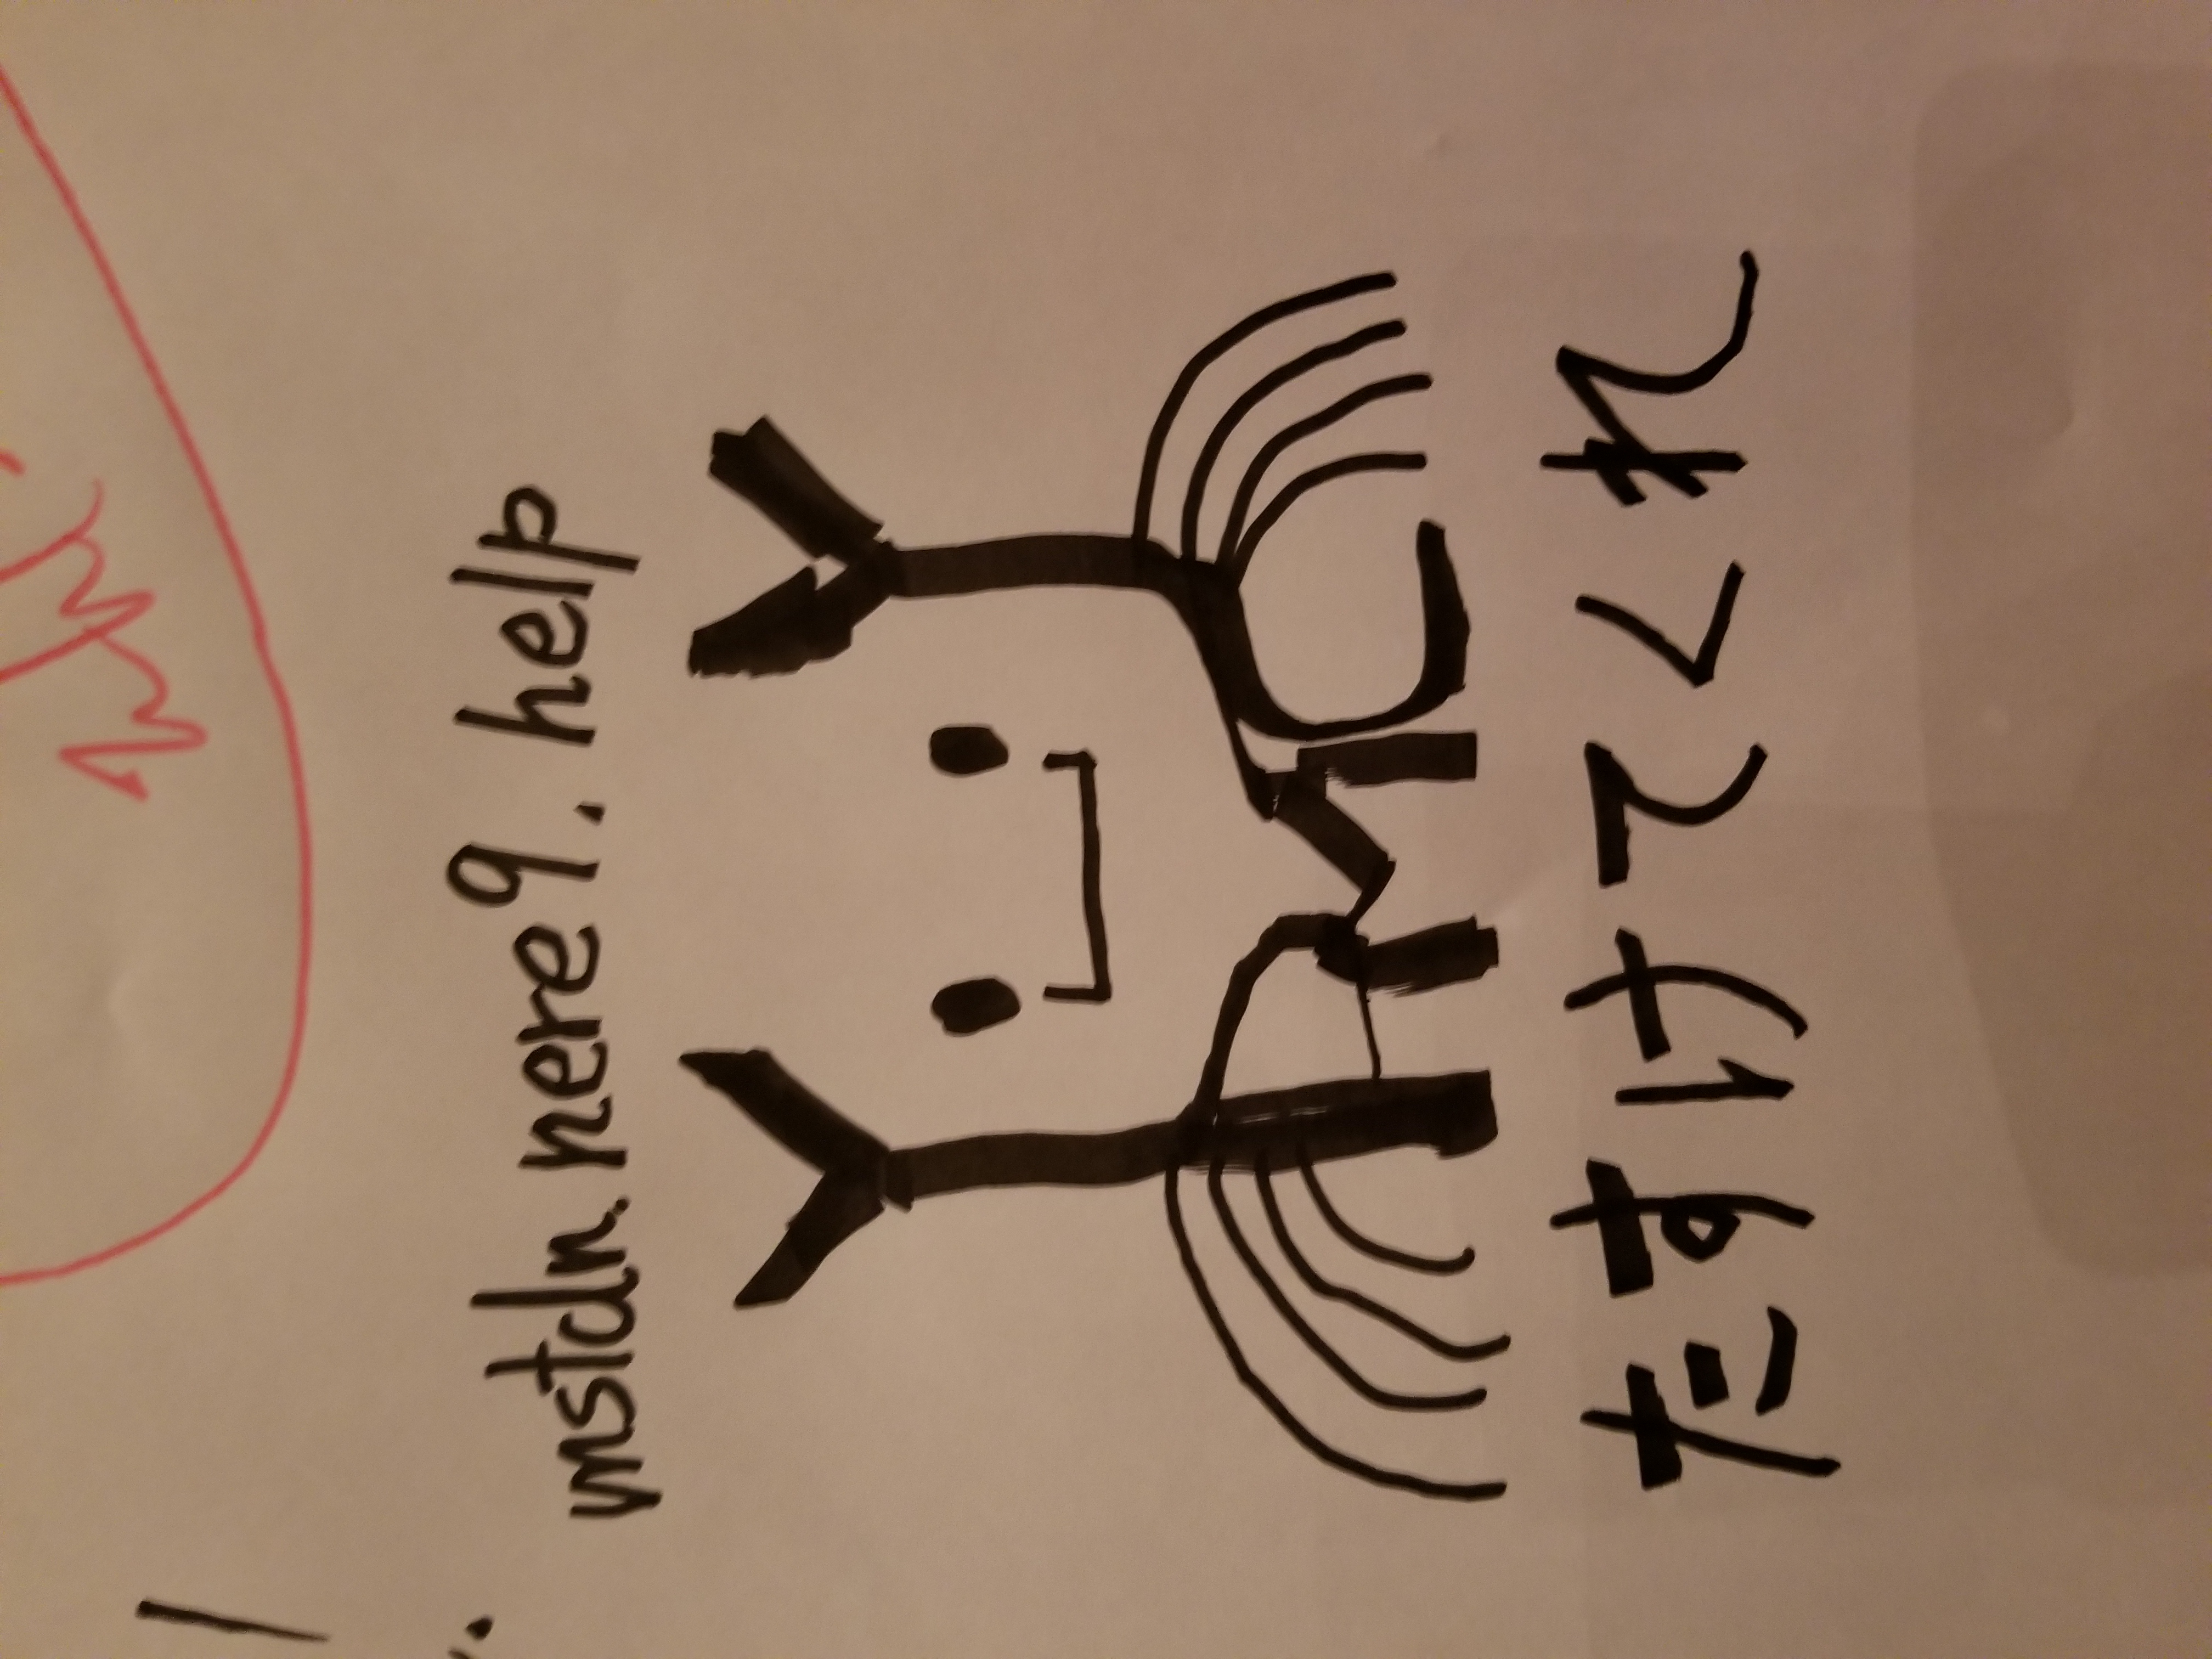 mstdn.nere9.help
たすけてくれ